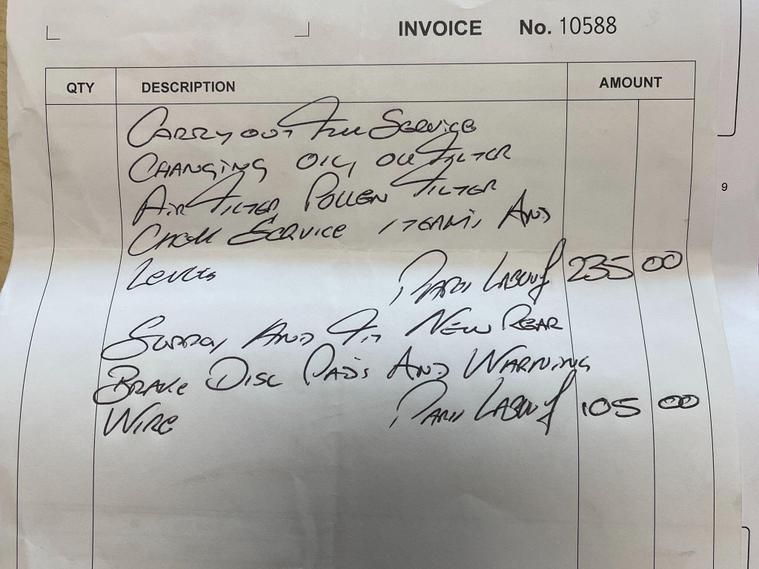 INVOICE No. 10588
QTY DESCRIPTION AMOUNT
CARRY OUT FULL SERVICE
CHANGING OIL, OIL FILTER
AIR FILTER POLLEN FILTER
CHECK SERVICE ITEMS AND
LEVELS PARTS LABOUR £ 235 00
SUPPLY AND FIT NEW REAR
BRAKE DISC PADS AND WARNING
WIRE PARTS LABOUR £ 105 00
9